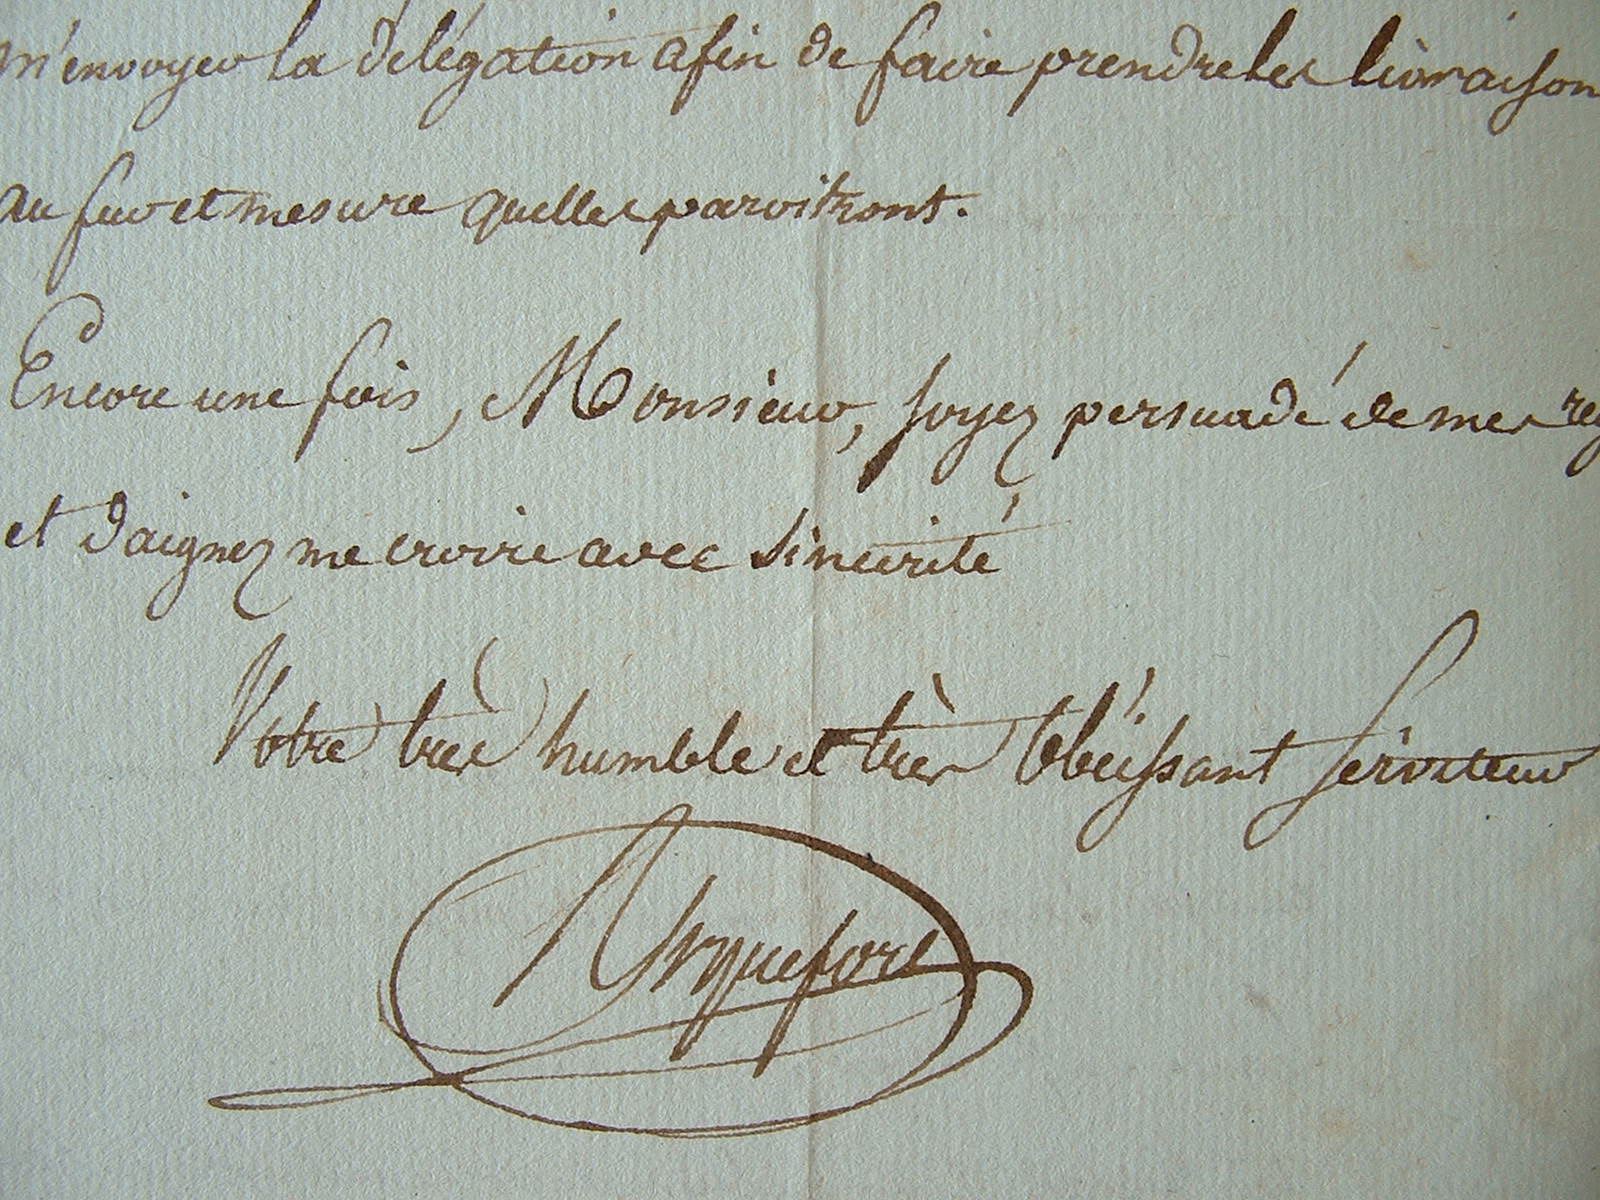 m'envoyer la délégation afin de faire prendre les livraison
au fur et mesure quelles paroitront.
Encore une fois, Monsieur, soyez persuadé de mes
et daignez me croire avec sincerité
Votre très humble et très Obéissant Serviteur
Roquefort